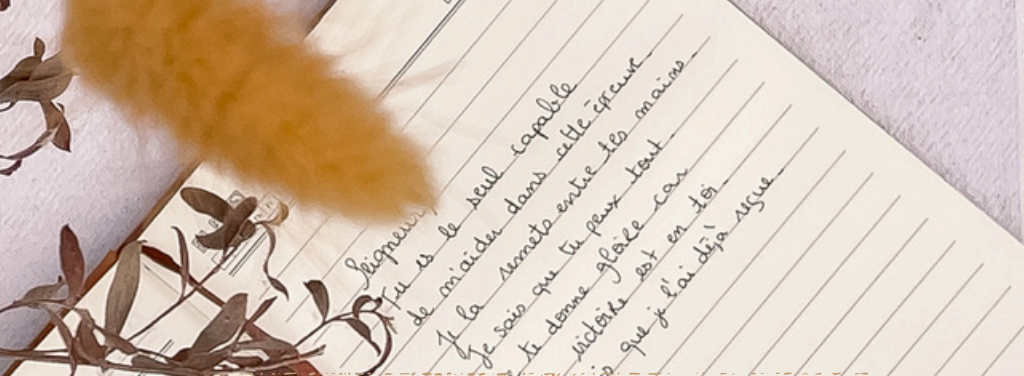 Seigneur
Tu es le seul capable
de m'aider dans cette épreuve.
Je la remets entre tes mains.
Je sais que tu peux tout.
te donne gloire car
victoire est en toi
que je l'ai déjà reçue.